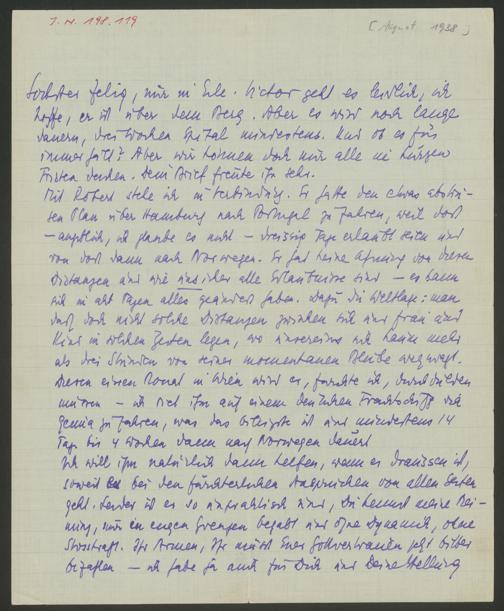 I. N. 198.119
[August 1938]
Liebster Felix, nur in Eile. Victor geht es leidlich, ich
hoffe, er ist über dem Berg. Aber es wird noch lange
dauern, drei Wochen Spital mindestens. Und ob es für
immer hält? Aber wir können doch nur alle in kurzen
Fristen denken. Dein Brief freute ihn sehr.
Mit Robert stehe ich in Verbindung. Er hatte den etwas
Plan über Hamburg nach Portugal zu fahren, weil dort
– angeblich, ich glaube es nicht – dreissig Tage erlaubt seien und
von dort dann nach Norwegen. Er hat keine Ahnung von diesen
Distanzen und wie unsicher alle Erlaubnisse sind – es kann
sich in acht Tagen alles geändert haben. Dazu die Weltlage: man
darf doch nicht solche Distanzen zwischen sich und Frau und
Kind in solchen Zeiten legen, wo unsereins sich kaum mehr
als drei Stunden von seiner momentanen Bleibe wegwagt.
Diesen einen Monat in Wien wird er, fürchte ich, durchdulden
müssen – ich riet ihm auf einem deutschen Frachtschiff via
Genua zu fahren, was das Billigste ist und mindestens 14
Tage bis 4 Wochen dann nach Norwegen dauert
Ich will ihm natürlich dann helfen, wenn er draussen ist,
soweit es bei den fürchterlichen Ansprüchen von allen Seiten
geht. Leider ist er so unpraktisch und, Du kennst meine Mei-
nung, nur in engen Grenzen begabt und ohne Dynamik, ohne
Stosskraft. Ihr Armen, Ihr müsst Euer Gottvertrauen jetzt bitter
bezahlen – ich habe ja auch für Dich und Deine Stellung